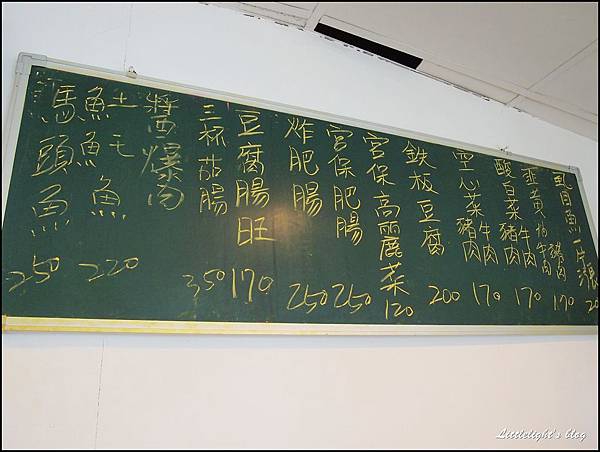 虱目魚一片
韭黃 牛肉 豬肉 170
酸白菜 牛肉 豬肉 170
空心菜 牛肉 豬肉 170
鐵板豆腐 200
宮保高麗菜 120
宮保肥腸 250
炸肥腸 250
豆腐腸旺 170
三杯茄腸 350
醬爆肉
土魠魚 220
馬頭魚 250
Littlelight's blog